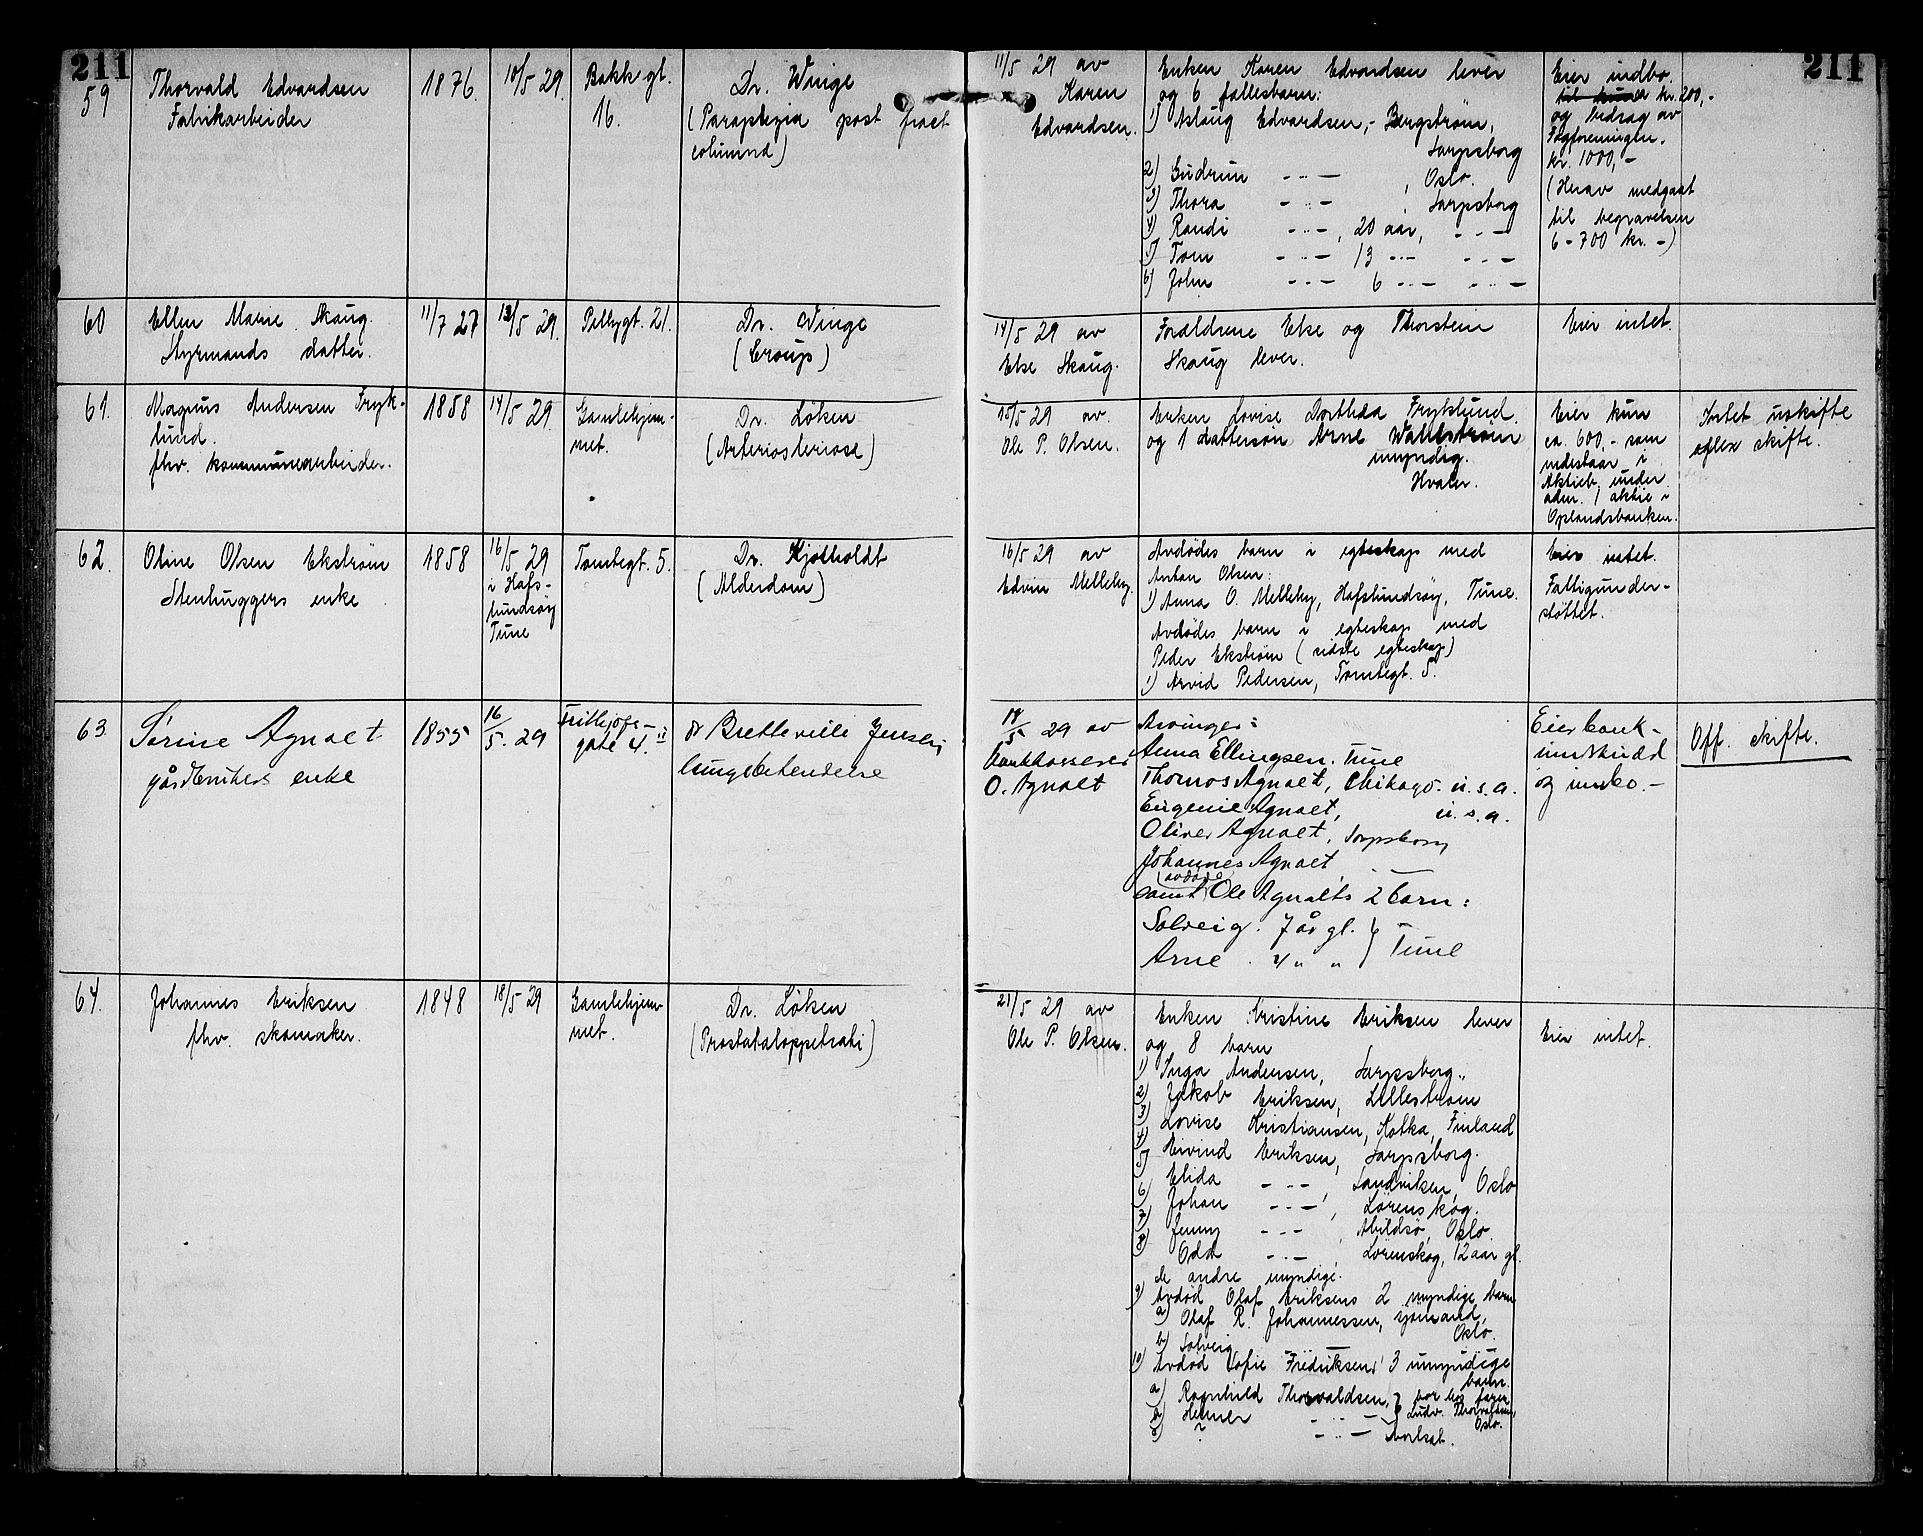 211
211
59
Thorvald Edvardsen
Fabrikarbeider
1876.
10/5 29.
Bakkegt.
16.
Dr. Winge
(Paraplegia post fract
columna)
11/5 29 av
Karen
Edvardsen.
Enken Karen Edvardsen lever
og 6 fællesbarn:
1) Aslaug Edvardsen, - Bergstrøm,
Sarpsborg
2) Gudrun -"- , Oslo.
3) Thora -"- , Sarpsborg
4) Randi -"-, 20 aar, -"-
5) Tom -"- 13 -"- -"-
6) John -"- 6 -"- -"-
Eier indbo.
kr. 200,-
og bidrag av
Fagforeningen.
kr. 1000,-
(Herav medgaat
til begravelsen
6-700 kr. -)
60
Ellen Marie Skaug
Styrmands datter.
11/7 27
13/5 29.
Pellygt. 21.
Dr. Winge
(Croup)
14/5 29 av
Else Skaug.
Forældrene Else og Thorstein
Skaug lever.
Eier intet.
61.
Magnus Andersen Fryk-
lund.
fhv. kommunearbeider.
1858
14/5 29.
Gamlehjem-
met.
Dr. Løken
(Arteriosclerose)
15/5 29 av.
Ole P. Olsen.
Enken Lovise Dorthea Fryklund.
og 1 dattersøn Arne Wahlstrøm
umyndig.
Hvaler.
Eier kun
ca. 600,- som
indestaar i
Aktieb. under
adm. 1 aktie i
Oplandsbanken.
Intet uskifte
eller skifte.
62.
Oline Olsen Ekstrøm
Stenhuggers enke
1858
16/5 29
i Hafs-
lundsøy
Tune
Tomtegt. 5.
Dr. Kjølholdt
(Alderdom)
16/5 29 av
Edvin Melleby.
Avdødes barn i egteskap med
Anton Olsen:
1) Anna O. Melleby, Hafslundsøy, Tune.
Avdødes barn i egteskap med
Peder Ekstrøm (sidste egteskap)
1) Arvid Pedersen, Tomtegt. 5.
Eier intet.
Fattigunder-
støttet.
63
Sørine Agnalt
gårdbrukers enke
1855
16/5. 29
Fritjofs-
gate 4. II
dr Bretteville Jensen
lungebetendelse
18/5 29 av
bankkasserer
O. Agnalt
Arvinger:
Anna Ellingsen. Tune
Thomas Agnalt, Chikago. u.s.a.
Eugenie Agnalt, u.s.a.
Oliver Agnalt, Sarpsborg
Johannes Agnalt
(avdøde)
samt Ole Agnalts 2 barn:
Solveig. 7 år gl. }
Arne . 4 " " } Tune
Eier bank-
innskudd
og innbo.-
Off. skifte.
64.
Johannes Eriksen
fhv. skomaker.
1848
18/5 29
Gamlehjem-
met.
Dr. Løken
(Prostatahypertrofi)
21/5 29 av
Ole P. Olsen.
Enken Kristine Eriksen lever
og 8 barn
1) Inga Andersen, Sarpsborg.,
2) Jakob Eriksen, Lillestrøm
3) Lovise Kristiansen, Kotka, Finland
4) Eivind Eriksen, Sarpsborg.
5) Elida -"-, Sandviken, Oslo
6) Johan -"-, Lørenskog.
7) Jenny -"-, Abildsø, Oslo.
8) Odd -"-, Lørenskog, 12 aar gl.
de andre myndige.
9) Avdød Olaf Eriksens 2 myndige barn
a) Olaf R. Johannessen, sjømand,
Oslo.
b) Solveig
10) Avdød Sofie Fredriksens 3 umyndige
barn.
a) Ragnhild Thorvaldsen, } bor hos faren
b) Helmer -"- } Ludv. Thorvaldsen,
Oslo.
c) ? -"- bortsat.
Eier intet.